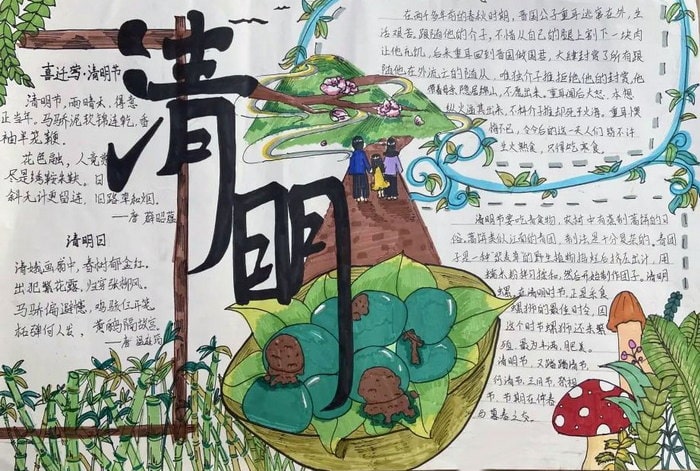 清明
喜迁莺·清明节
清明节,雨晴天,得意
正当年。马骄泥软锦连乾,香
袖半笼鞭。
花色融,人竟赏,
尽是绣鞍朱鞅。日
斜无计更留连,归路草和烟。
——唐 薛昭蕴
清明日
清娥画扇中,春树郁金红。
出犯繁花露,归穿弱柳风。
马骄偏避幰,鸡骇乍开笼。
柘弹何人发,黄鹂隔故宫。
——唐 温庭筠
在两千多年前的春秋时期,晋国公子重耳逃亡在外,生
活艰苦,跟随他的介子,不惜从自己的腿上割下一块肉
让他充饥,后来重耳回到晋国做国君,大肆封赏了所有跟
随他在外流亡的随从,唯独介子推拒绝他的封赏,他
带着母亲隐居绵山,不肯出来,重耳闻后大怒,亦想
纵火逼其出来,不料介子推却死于火海。重耳恨
悔不已,令今后的这一天人们皆不许
生火热食,只得吃寒食。
清明节要吃青食物,农村中有蒸制蒿饼的习
俗。蒿饼类似江南的青团,制法是十分复杂的。青团
子是一种浆麦草的野生植物捣烂后挤压出汁,用
糯米粉拌匀揉和,然后开始制作团子。清明
螺,在清明时节,正是采食
螺蛳的最佳时令,因
这个时节螺蛳还未繁
殖,最为丰满、肥美。
清明节,又踏踏清节、
行清节、三月节、祭祖
节、节期在仲春
与暮春之交。